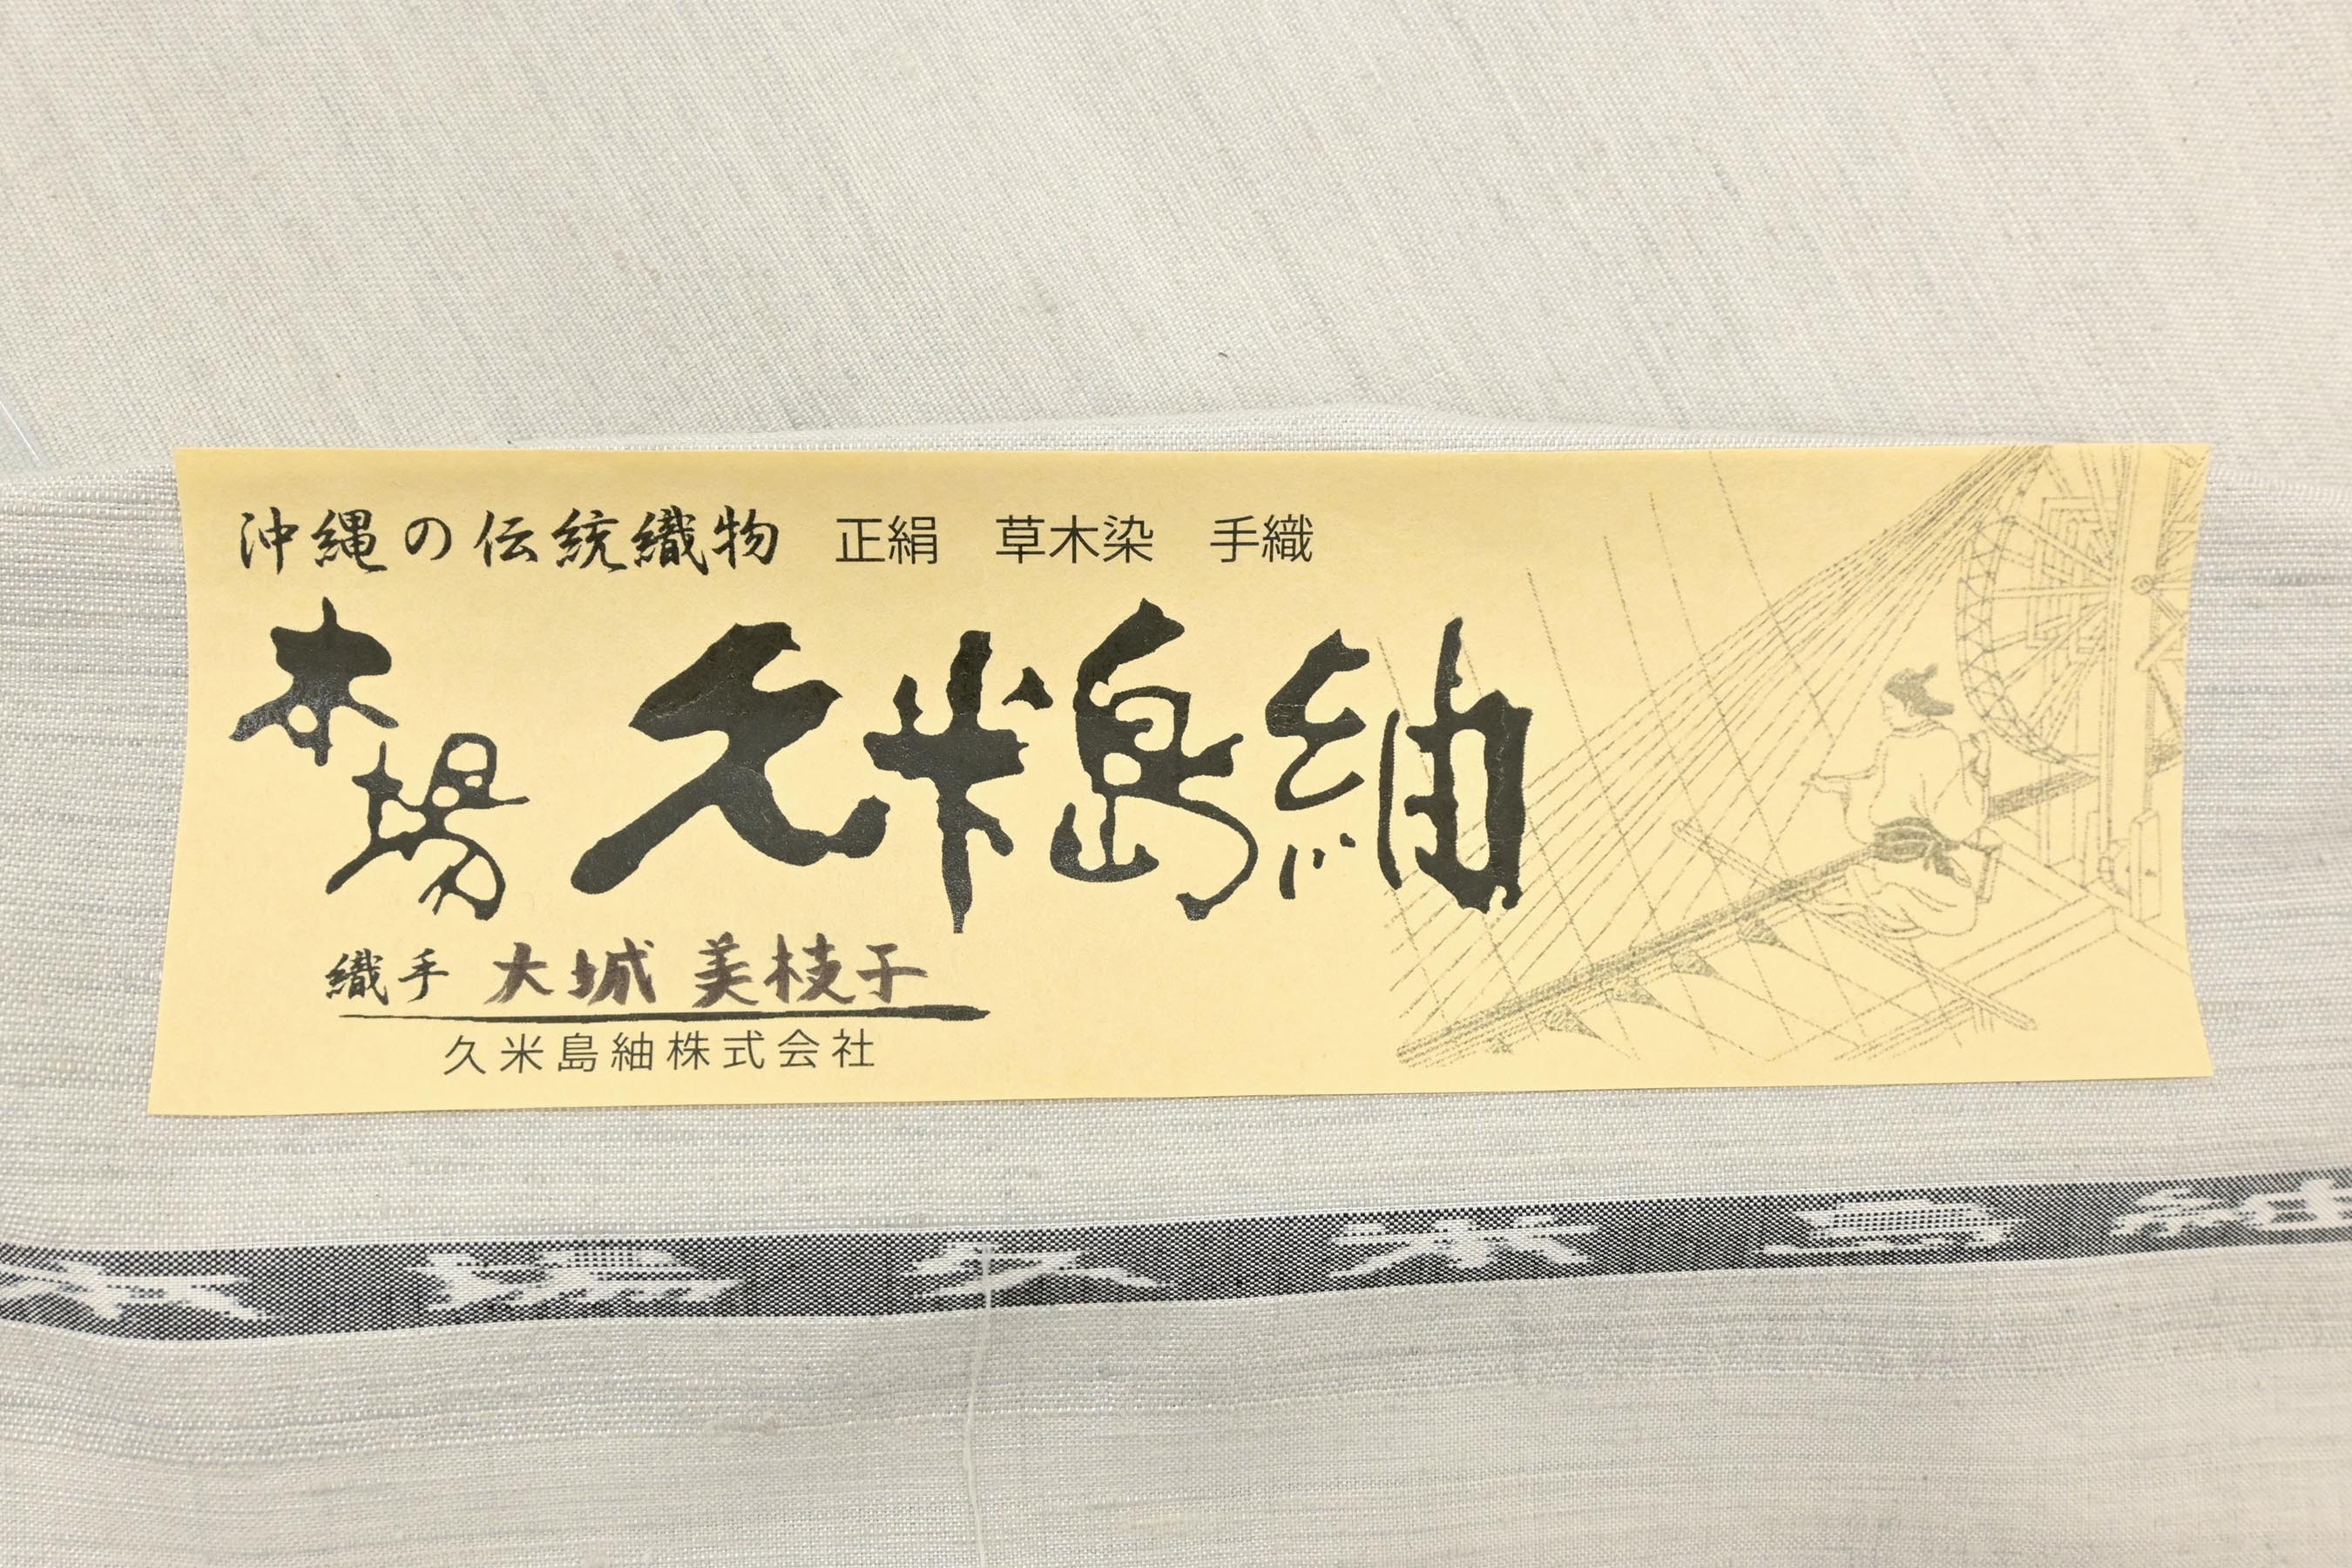 沖縄の伝統織物 正絹 草木染 手織
本場 久米島紬
織手 大城 美枝子
久米島紬株式会社
本場久米島紬